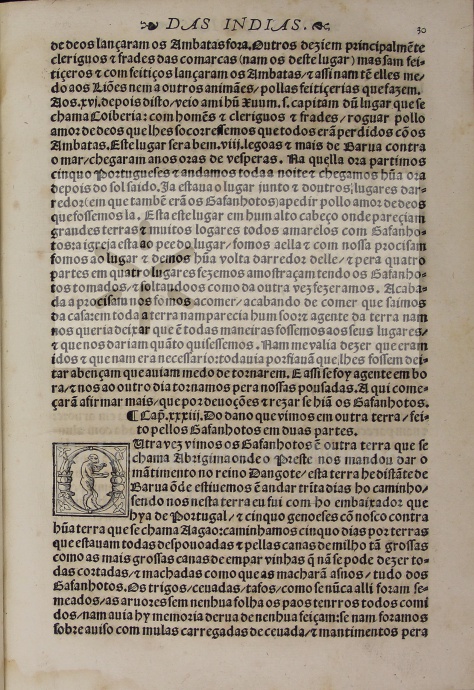 DAS INDIAS. 30
de deos lançaram os Ambatas fora. Outros deziem principalmẽte
cleriguos ⁊ frades das comarcas (nam os deste lugar) mas sam fei-
tiçeros ⁊ com feitiços lançaram os Ambatas/ ⁊ assi nam tẽ elles me-
do aos Liões nem a outros animães/ pollas feitiçerias que fazem.
Aos .xvj. depois disto/ veio ami hũ Xuum .s. capitam dũ lugar que se
chama Coiberia: com homẽs ⁊ cleriguos ⁊ frades/ roguar pollo
amor de deos que lhes socorressemos que todos erã perdidos cõ os
Ambatas. Este lugar sera bem .viij. legoas ⁊ mais de Barua contra
o mar/ chegaram a nos oras de vesperas. Na quella ora partimos
cinquo Portugueses ⁊ andamos toda a noite ⁊ chegamos hũa ora
depois do sol saido. Ja estaua o lugar junto ⁊ doutros lugares dar-
redor (em que tambẽ erã os Gafanhotos) a pedir pollo amor de deos
que fossemos la. Esta este lugar em hum alto cabeço onde pareçiam
grandes terras ⁊ muitos logares todos amarelos com Gafanho-
tos: a igreja esta ao pee do lugar/ fomos a ella ⁊ com nossa procisam
fomos ao lugar ⁊ demos hũa volta darredor delle/ ⁊ pera quatro
partes em quatro lugares fezemos amostraçam tendo os Gafanho-
tos tomados/ ⁊ soltaudoos como da outra vez fezeramos. Acaba-
da a procisam nos fomos a comer/ acabando de comer que saimos
da casa rem toda a terra nam parecia hum soo: ⁊ a gente da terra nam
nos queria deixar que ẽ todas maneiras fossemos a seus lugares/
⁊ que nos dariam quãto quisessemos. Nam me valia dezer que eram
idos ⁊ que nam era necessario: todauia porfiauã que lhes fossem dei-
tar abençam que auiam medo de tornarem. E assi se foy a gente em bo
ra/ ⁊ nos ao outro dia tornamos pera nossas pousadas. A qui come-
çarã afirmar mais/ que por deuoções ⁊ rezar se hiã os Gafanhotos.
¶ Cap. xxxiij. Do dano que vimos em outra terra/ fei-
to pellos Gafanhotos em duas partes.
OUtra vez vimos os Gafanhotos ẽ outra terra que se
chama Abrigima onde o Preste nos mandou dar o
mãtimento no reino Dangote/ esta terra he distãte de
Barua õde estiuemos ẽ andar trĩta dias ho caminho/
sendo nos nesta terra eu fui com ho embaixador que
hya de Portugal/ ⁊ cinquo genoeses cõ nosco contra
hũa terra que se chama Aagao: caminhamos cinquo dias por terras
que estauam todas despouoadas ⁊ pellas canas de milho tã grossas
como as mais grossas canas de empar vinhas q̃ nã se pode dezer to-
das cortadas/ ⁊ machadas como que as macharã asnos/ tudo dos
Gafanhotos. Os trigos/ ceuadas/ tafos/ como se nũca alli foram se-
meados/ as aruores sem nenhua folha os paos tenrros todos comi
dos/ nam auia hy memoria derua de nenhua feiçam: se nam foramos
sobre auiso com mulas carregadas de ceuada/ ⁊ mantimentos pera